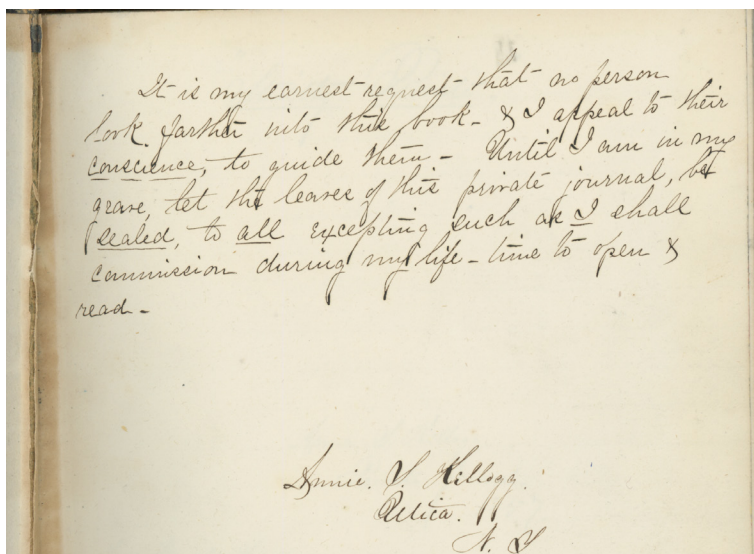 It is my earnest request that no person
look farther into this book - & I appeal to their
conscience, to guide them - Until I am in my
grave, let the leaves of this private journal, be
sealed, to all excepting such as I shall
commission during my life-time to open &
read -
Annie. S. Kellogg.
Utica.
N. Y